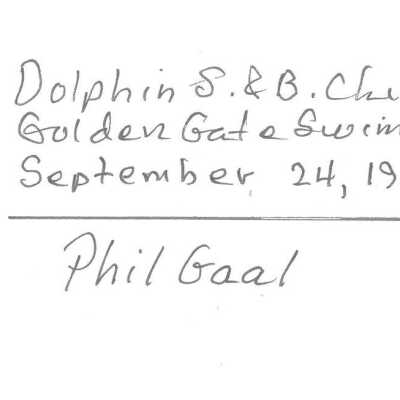 Dolphin S. & B. Clu
Golden Gate Swim
September 24, 19
Phil Gaal